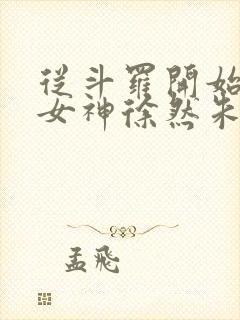 從斗羅開始
女神徐然朱
孟飛